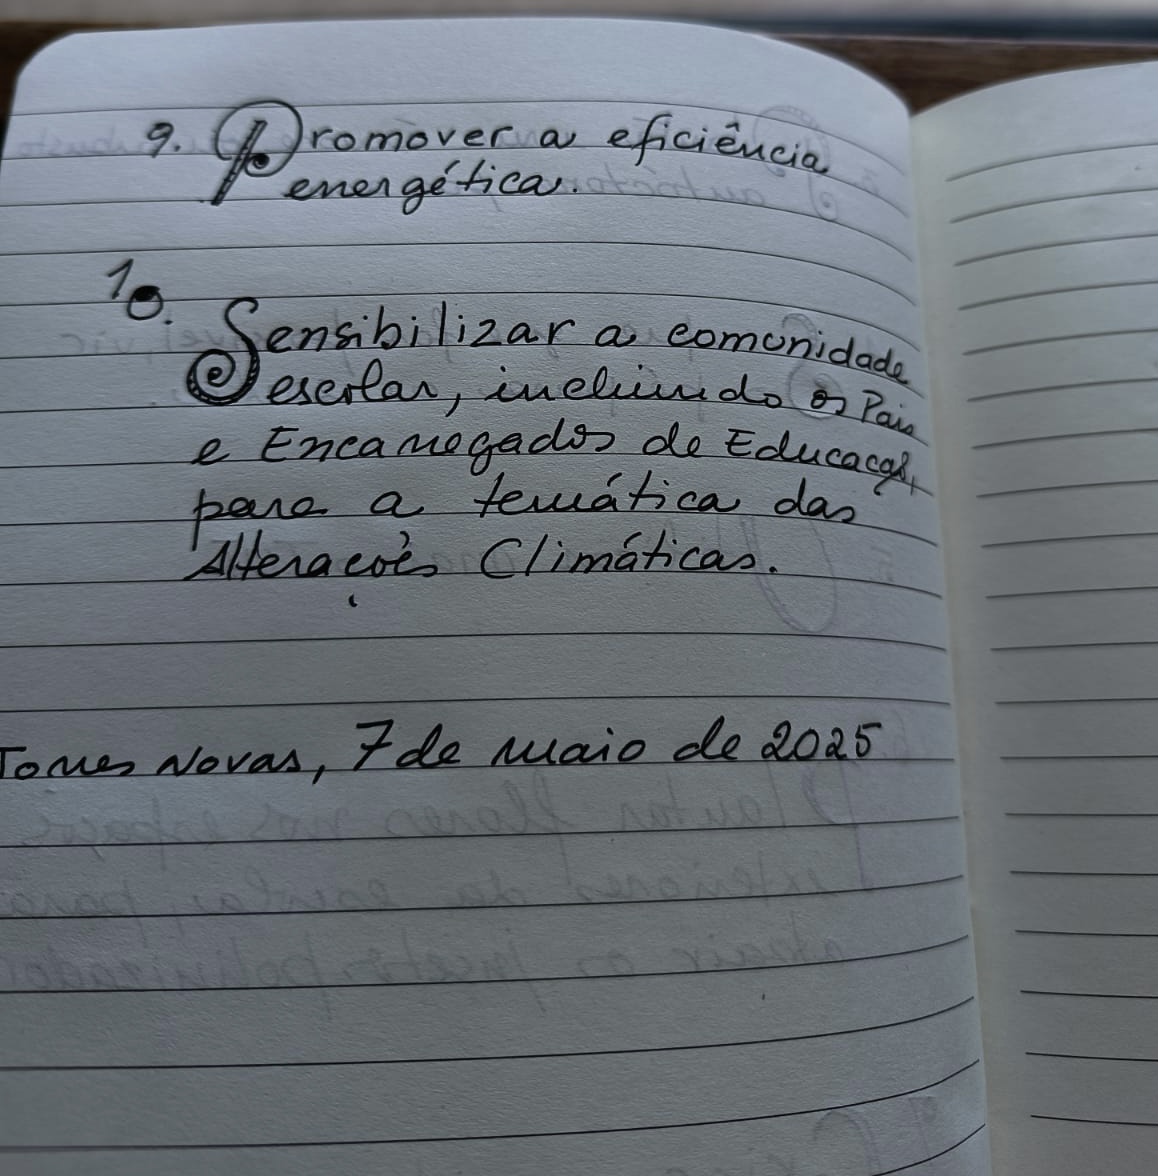 9. Promover a eficiência
energética.
10.
Sensibilizar a comunidade
escolar, incluindo os Pais
e Encarregados de Educação,
para a temática das
Alterações Climáticas.
Torres Novas, 7 de maio de 2025